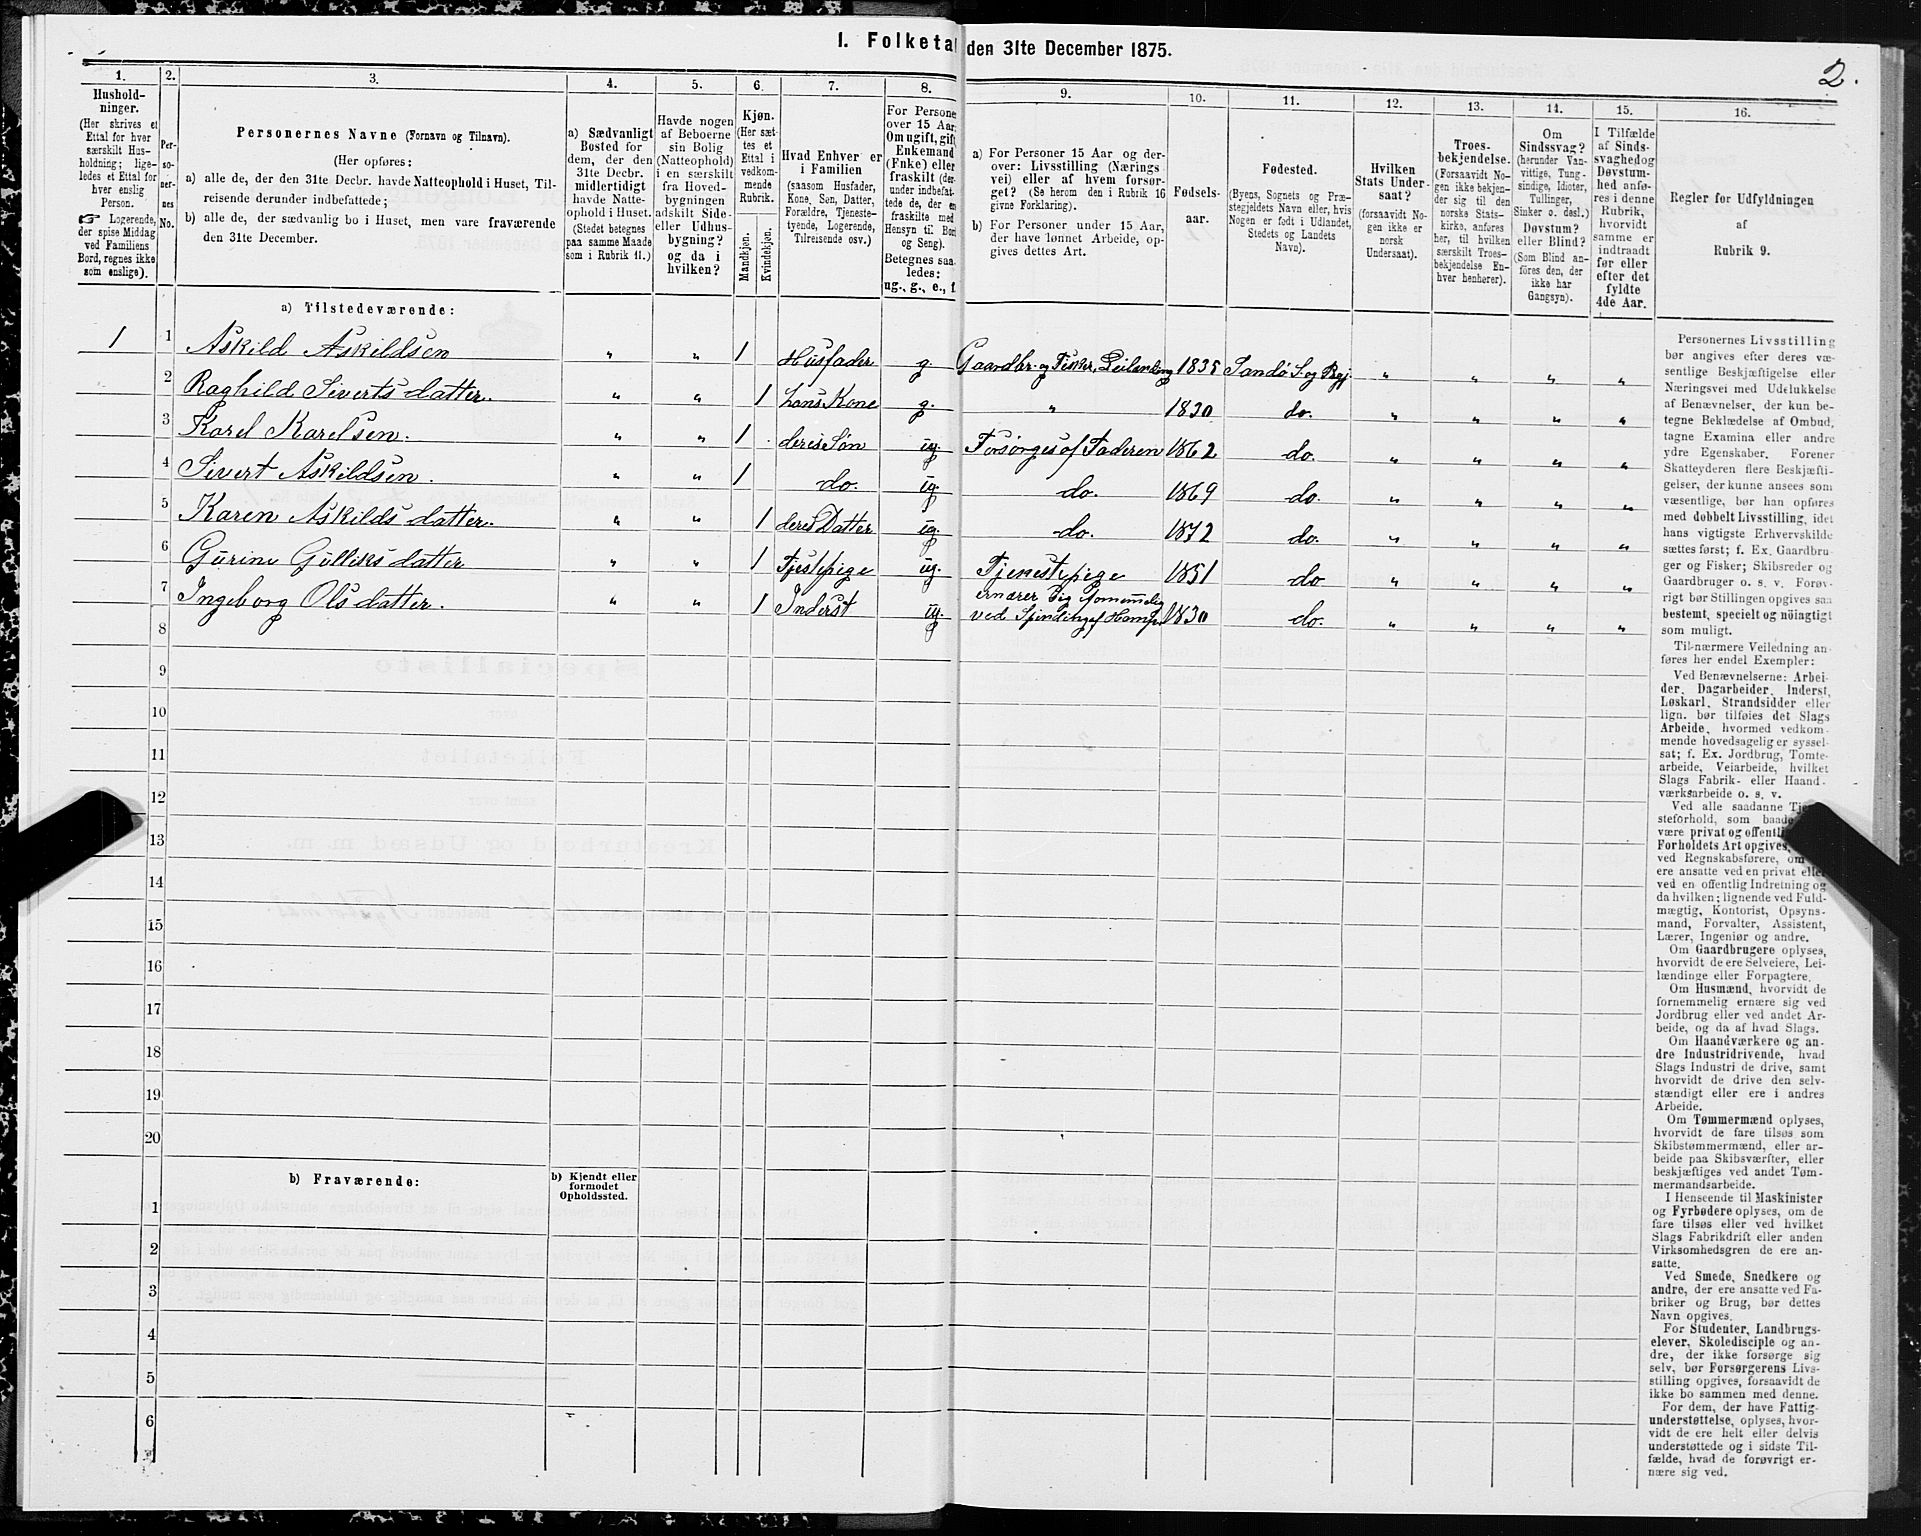 I. Folketal den 31te December 1875.
2.
1.
Hushold-
ninger.
(Her skrives et
Ettal for hver
særskilt Hus-
holdning; lige-
ledes et Ettal for
hver enslig
Person.
☞ Logerende,
der spise Middag
ved Familiens
Bord, regnes ikke
som enslige).
2.
Per-
so-
ner-
nes
No.
3.
Personernes Navne (Fornavn og Tilnavn).
(Her opføres:
a) alle de, der den 31te Decbr. havde Natteophold i Huset, Til-
reisende derunder indbefattede;
b) alle de, der sædvanlig bo i Huset, men vare fraværende
den 31te December.
4.
a) Sædvanligt
Bosted for
dem, der den
31te Decbr.
midlertidigt
havde Natte-
ophold i Huset.
(Stedet betegnes
paa samme Maade
som i Rubrik 11.)
5.
Havde nogen
af Beboerne
sin Bolig
(Natteophold)
i en særskilt
fra Hoved-
bygningen
adskilt Side-
eller Udhus-
bygning?
og da i
hvilken?
6.
Kjøn.
(Her sæt-
tes et
Ettal i
vedkom-
mende
Rubrik.
Mandkjøn.
Kvindekjøn.
7.
Hvad Enhver er
i Familien
(saasom Husfader,
Kone, Søn, Datter,
Forældre, Tjeneste-
tyende, Logerende,
Tilreisende osv.)
8.
For Persone
over 15 Aar:
Om ugift, gift,
Enkemand
(Enke) eller
fraskilt (der-
under indbefat-
tede de, der e
fraskilte med
Hensyn til Bor
og Seng).
Betegnes saa
ledes:
ug., g., e., f.
9.
a) For Personer 15 Aar og der-
over: Livsstilling (Nærings-
vei) eller af hvem forsør-
get? (Se herom den i Rubrik 16
givne Forklaring).
b) For Personer under 15 Aar,
der have lønnet Arbeide, op-
gives dettes Art.
10.
Fødsels-
aar.
11.
Fødested.
(Byens, Sognets og Præ-
stegjeldets Navn eller, hvis
Nogen er født i Udlandet,
Stedets og Landets
Navn).
12.
Hvilken
Stats Under-
saat?
(forsaavidt No-
gen ikke er
norsk
Undersaat).
13.
Troes-
bekjendelse.
(Forsaavidt No-
gen ikke bekjen-
der sig til den
norske Stats-
kirke, anføres
her, til hvilken
særskilt Troes-
bekjendelse En-
hver henhører).
14.
Om
Sindssvag?
(herunder Van-
vittige, Tung-
sindige, Idioter,
Tullinger,
Sinker o. desl.)
Døvstum?
eller Blind?
(Som Blind an-
føres den, der
ikke har
Gangsyn).
15.
I Tilfælde
af Sinds-
svaghed og
Døvstum-
hed anfø-
res i denne
Rubrik,
hvorvidt
samme er
indtraadt
før eller
efter det
fyldte
4de Aar.
16.
Regler for Udfyldningen
af
Rubrik 9.
a) Tilstedeværende:
1 1 Askild Askildsen " " 1 Husfader g Gaardbr. og Fisker, Leilænding 1835 Sandø S. og Pgj " " " "
2 Raghild Siverts datter. " " 1 hans Kone g. " 1830 do. " " " "
3 Karel Karelsen. " " 1 deres Søn ug. Forsørges af Faderen 1862 do. " " " "
4 Sivert Askildsen. " " 1 do. ug. do. 1869 do. " " " "
5 Karen Askilds datter. " " 1 deres Datter ug. do. 1872 do. " " " "
6 Gurine Gulliks datter " " 1 Tjestepige ug. Tjenestepige 1851 do " " " "
7 Ingeborg Ols datter. " " 1 Inderst ug. ernærer sig fornemmelig
ved Spinding af Hamp. 1830 do. " " " "
8
9
10
11
12
13
14
15
16
17
18
19
20
b) Fraværende:
b) Kjendt eller
formodet
Opholdssted.
1
2
3
4
5
6
Personernes Livsstilling
bør angives efter deres væ-
sentlige Beskjæftigelse eller
Næringsvei med Udelukkelse
af Benævnelser, der kun be-
tegne Beklædelse af Ombud,
tagne Examina eller andre
ydre Egenskaber. Forener
Skatteyderen flere Beskjæfti-
gelser, der kunne ansees som
væsentlige, bør han opføres
med dobbelt Livsstilling, idet
hans vigtigste Erhvervskilde
sættes først; f. Ex. Gaardbru-
ger og Fisker; Skibsreder og
Gaardbruger o. s. v. Forøv-
rigt bør Stillingen opgives saa
bestemt, specielt og nöiagtigt
som muligt.
Til nærmere Veiledning an-
føres her endel Exempler:
Ved Benævnelserne: Arbei-
der, Dagarbeider, Inderst,
Løskarl, Strandsidder eller
lign. bør tilføies det Slags
Arbeide, hvormed vedkom-
mende hovedsagelig er syssel-
sat; f. Ex. Jordbrug, Tomte-
arbeide, Veiarbeide, hvilket
Slags Fabrik- eller Haand-
værksarbeide o. s. v.
Ved alle saadanne Tje
steforhold, som baade
være privat og offentlig
Forholdets Art opgives,
ved Regnskabsførere, om
ere ansatte ved en privat eller
ved en offentlig Indretning og
da hvilken; lignende ved Fuld-
mægtig, Kontorist, Opsyns-
mand, Forvalter, Assistent,
Lærer, Ingeniør og andre.
Om Gaardbrugere oplyses,
hvorvidt de ere Selveiere, Lei-
lændinge eller Forpagtere.
Om Husmænd, hvorvidt de
fornemmelig ernære sig ved
Jordbrug eller ved andet Ar-
beide, og da af hvad Slags.
Om Haandværkere og an-
dre Industridrivende, hvad
Slags Industri de drive, samt
hvorvidt de drive den selv-
stændigt eller ere i andres
Arbeide.
Om Tømmermænd oplyses,
hvorvidt de fare tilsøs som
Skibstømmermænd, eller ar-
beide paa Skibsværfter, eller
beskjæftiges ved andet Tøm-
mermandsarbeide.
I Henseende til Maskinister
og Fyrbødere oplyses, om de
fare tilsøs eller ved hvilket
Slags Fabrikdrift eller anden
Virksomhedsgren de ere an-
satte.
Ved Smede, Snedkere og
andre, der ere ansatte ved Fa-
briker og Brug, bør dettes
Navn opgives.
For Studenter, Landbrugs-
elever, Skoledisciple og an-
dre, der ikke forsørge sig
selv, bør Forsørgerens Livs-
stilling opgives, forsaavidt de
ikke bo sammen med denne.
For dem, der have Fattig-
understøttelse, oplyses, hvor-
vidt de ere helt eller delvis
understøttede og i sidste Til-
fælde, hvad de forøvrigt er-
nære sig ved.